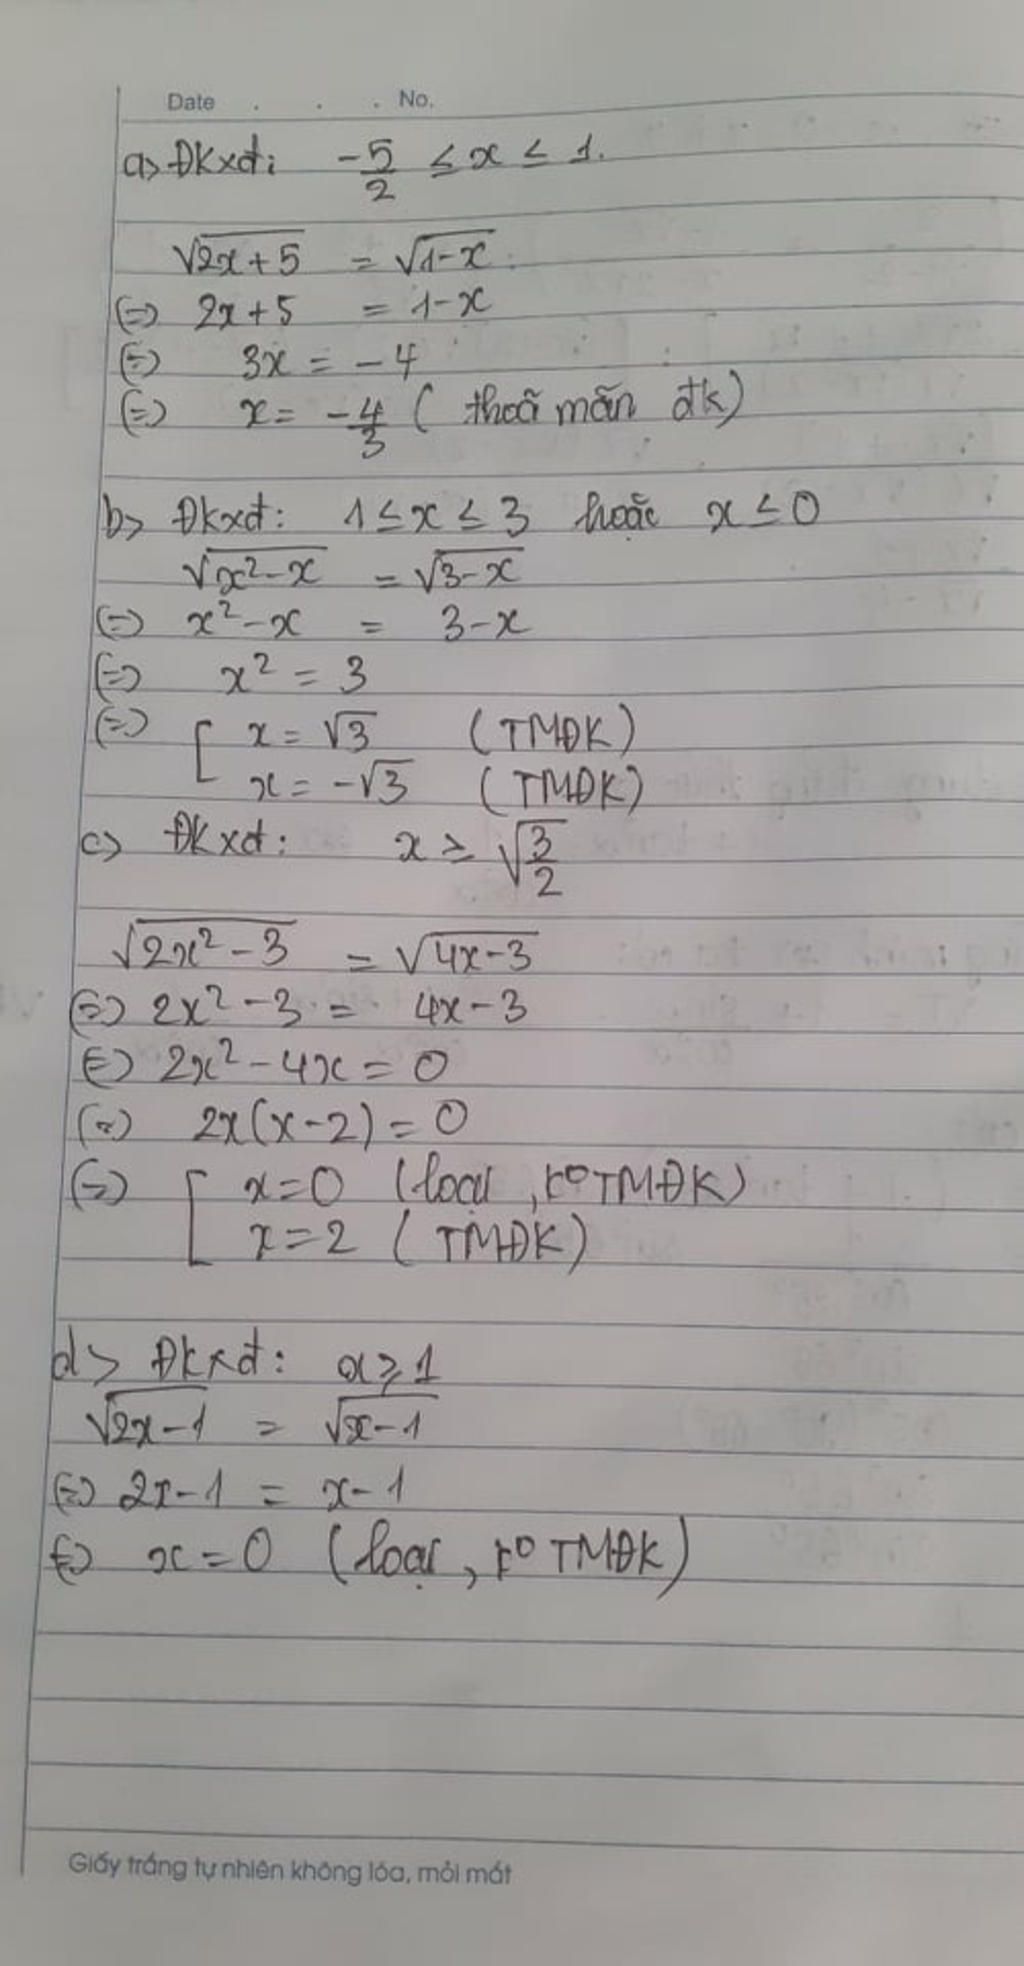 Date . . . No.
a> Đkxđ: -5/2 ≤ x ≤ 1.
√(2x+5) = √(1-x)
(=) 2x+5 = 1-x
(=) 3x = -4
(=) x = -4/3 ( thoã mãn đk)
b> Đkxđ: 1 ≤ x ≤ 3 hoặc x ≤ 0
√(x²-x) = √(3-x)
(=) x²-x = 3-x
(=) x² = 3
(=) [ x = √3 (TMĐK)
x = -√3 (TMĐK)
c> Đkxđ: x ≥ √(3/2)
√(2x²-3) = √(4x-3)
(=) 2x²-3 = 4x-3
(=) 2x²-4x = 0
(=) 2x(x-2) = 0
(=) [ x=0 (loại, k⁰ TMĐK)
x=2 (TMĐK)
d> Đkxđ: x ≥ 1
√(2x-1) = √(x-1)
(=) 2x-1 = x-1
(=) x=0 (loại, k⁰ TMĐK)
Giấy trắng tự nhiên không lóa, mỏi mắt